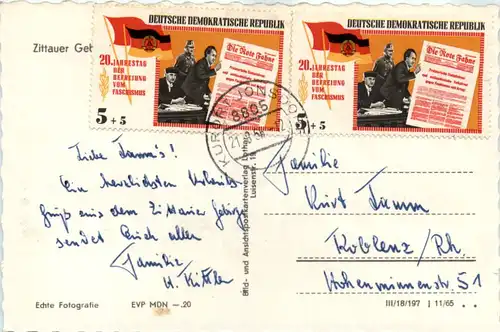 Zittauer Geb
DEUTSCHE DEMOKRATISCHE REPUBLIK
20. JAHRESTAG
DER
BEFREIUNG
VOM
FASCHISMUS
Die Rote Fahne
5 + 5
DEUTSCHE DEMOKRATISCHE REPUBLIK
20. JAHRESTAG
DER
BEFREIUNG
VOM
FASCHISMUS
Die Rote Fahne
5 + 5
8805
Liebe Tamm's!
Ein herzlichsten Urlaubs-
gruß aus dem Zittauer Gebirge
sendet Euch allen
Familie
H. Kittler
Echte Fotografie EVP MDN —.20
Bild- und Ansichtskartenverlag
Luisenstr. 19
Familie
Kurt Tamm
Koblenz/Rh.
Hohenzollernstr. 51
III/18/197 11/65